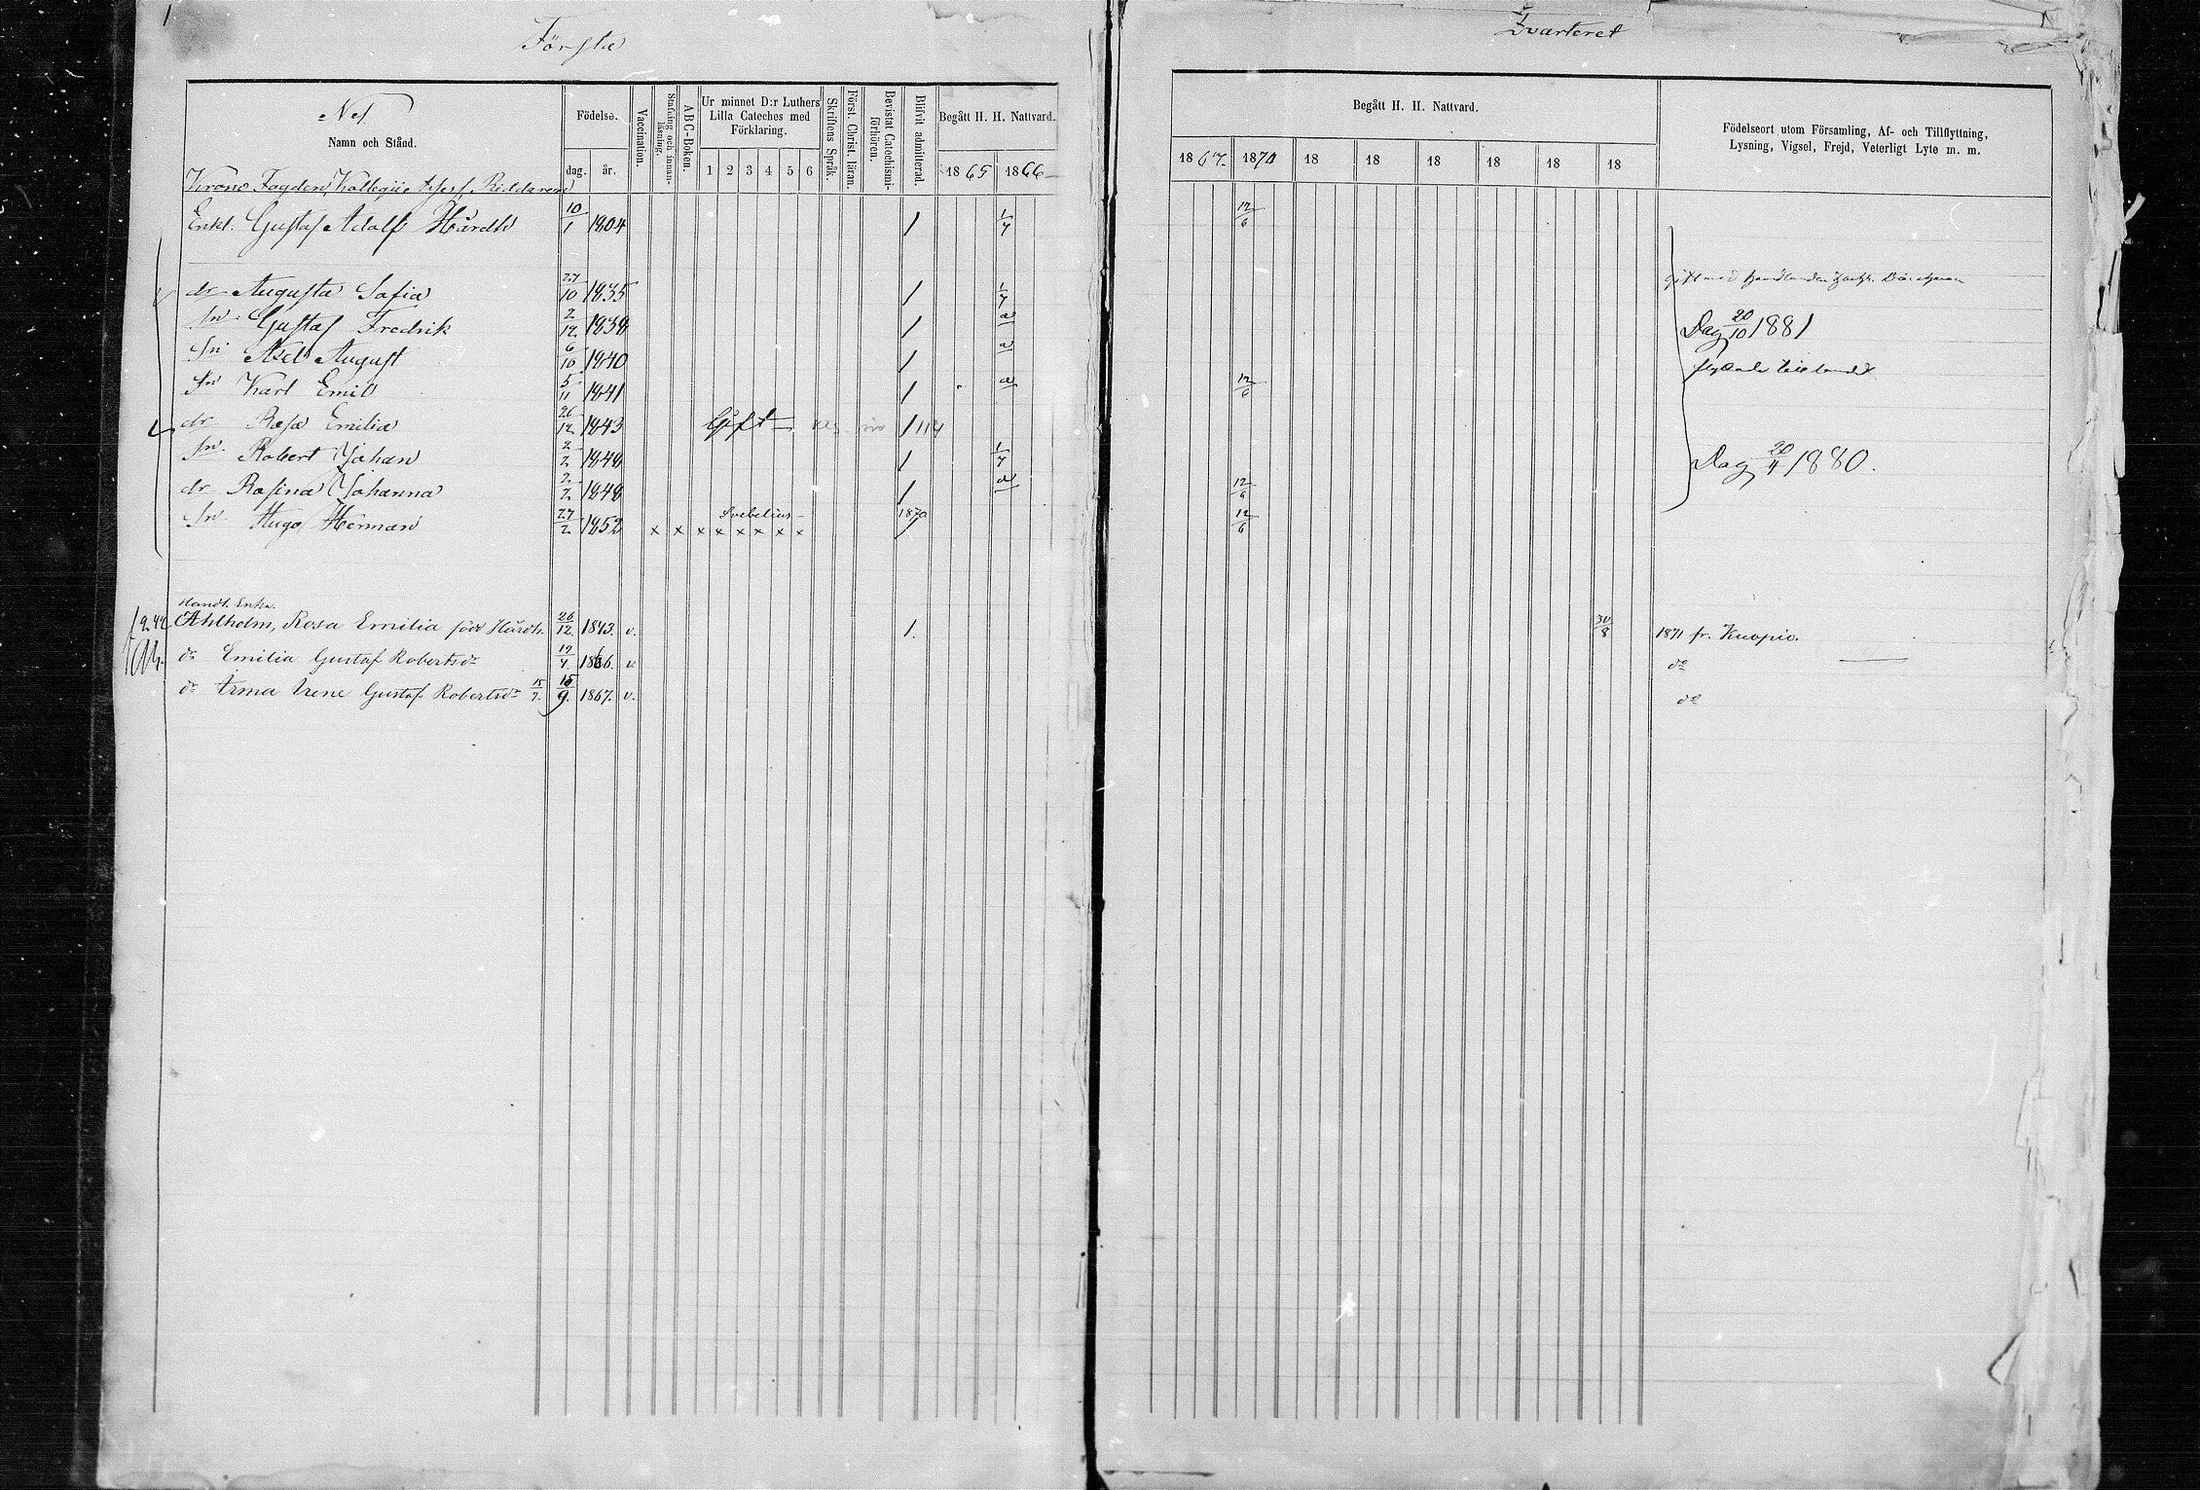 1
Första Qvarteret
No 1
Namn och Stånd.
Födelse.
dag. år.
Vaccination.
Stafning och innanläsning.
ABC-Boken.
Ur minnet D:r Luthers Lilla Cateches med Förklaring.
1 2 3 4 5 6
Skriftens Språk.
Först. Christ. läran.
Bevistat Catechismiförhören.
Blifvit admitterad.
Begått H. H. Nattvard.
1865 1866
Begått H. H. Nattvard.
1867. 1870 18 18 18 18 18 18
Födelseort utom Församling, Af- och Tillflyttning, Lysning, Vigsel, Frejd, Veterligt Lyte m. m.
Krono Fogden, Kollegii Assess. Riddaren
Enkl. Gustaf Adolf Hårdh 10/1 1804 1 1/7 12/6
dr Augusta Sofia 27/10 1835 1 1/7 gift med Handlanden
sn Gustaf Fredrik 2/12 1838 1 a Dag 20/10 1881
sn Axel August 6/10 1840 1 a
sn Karl Emil 5/11 1841 1 a 12/6
dr Rosa Emilia 26/12 1843 Gift 1
sn Robert Johan 2/2 1848 1 1/7 Dag 20/4 1880.
dr Rosina Johanna 2/2 1848 1 a 12/6
sn Hugo Herman 27/2 1852 x x x x x x x x Svebelius 1870 12/6
Handl. Enka.
Ahlholm, Rosa Emilia född Hårdh. 26/12 1843. v. 1. 30/8 1871 fr. Kuopio.
dr Emilia Gustaf Robertsdr 19/4 1866. v. do
dr Irma Irene Gustaf Robertsdr 15/9. 1867. v. do